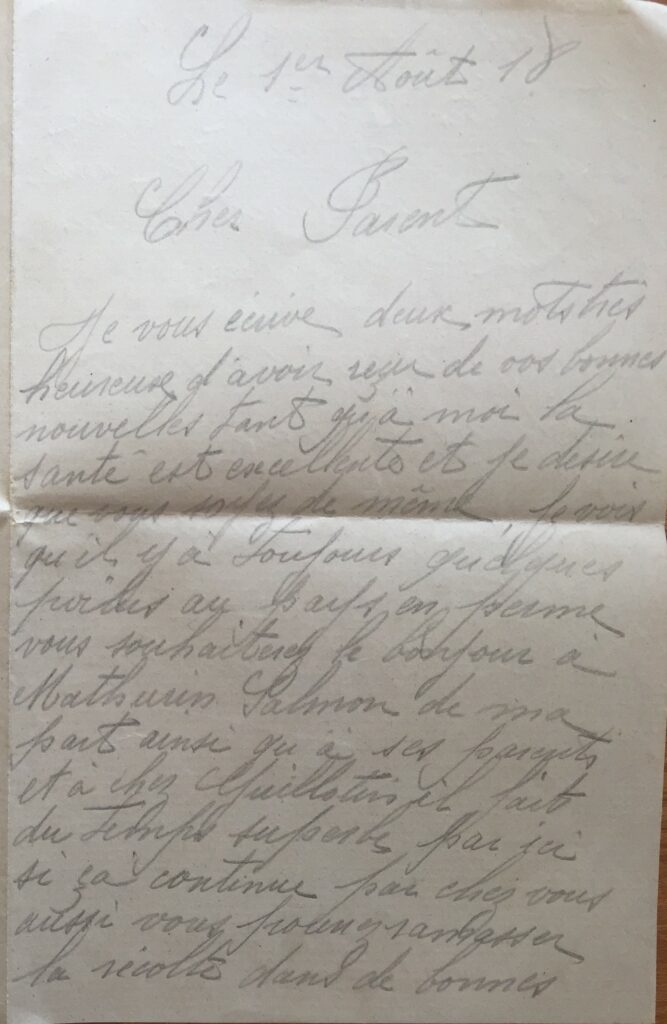 Le 1er Août 18
Cher Parent
Je vous écrive deux mots très
heureuse d'avoir reçu de vos bonnes
nouvelles tant qu'à moi la
santé est excellente et je désire
que vous soyez de même, Je vois
qu'il y à toujours quelques
poilus au pays en perme
vous souhaiterez le bonjour à
Mathurin Salmon de ma
part ainsi qu'à ses parents
et à chez Guillotin il fait
du temps superbe par ici
si ça continue par chez vous
aussi vous pourrez ramasser
la récolte dans de bonnes